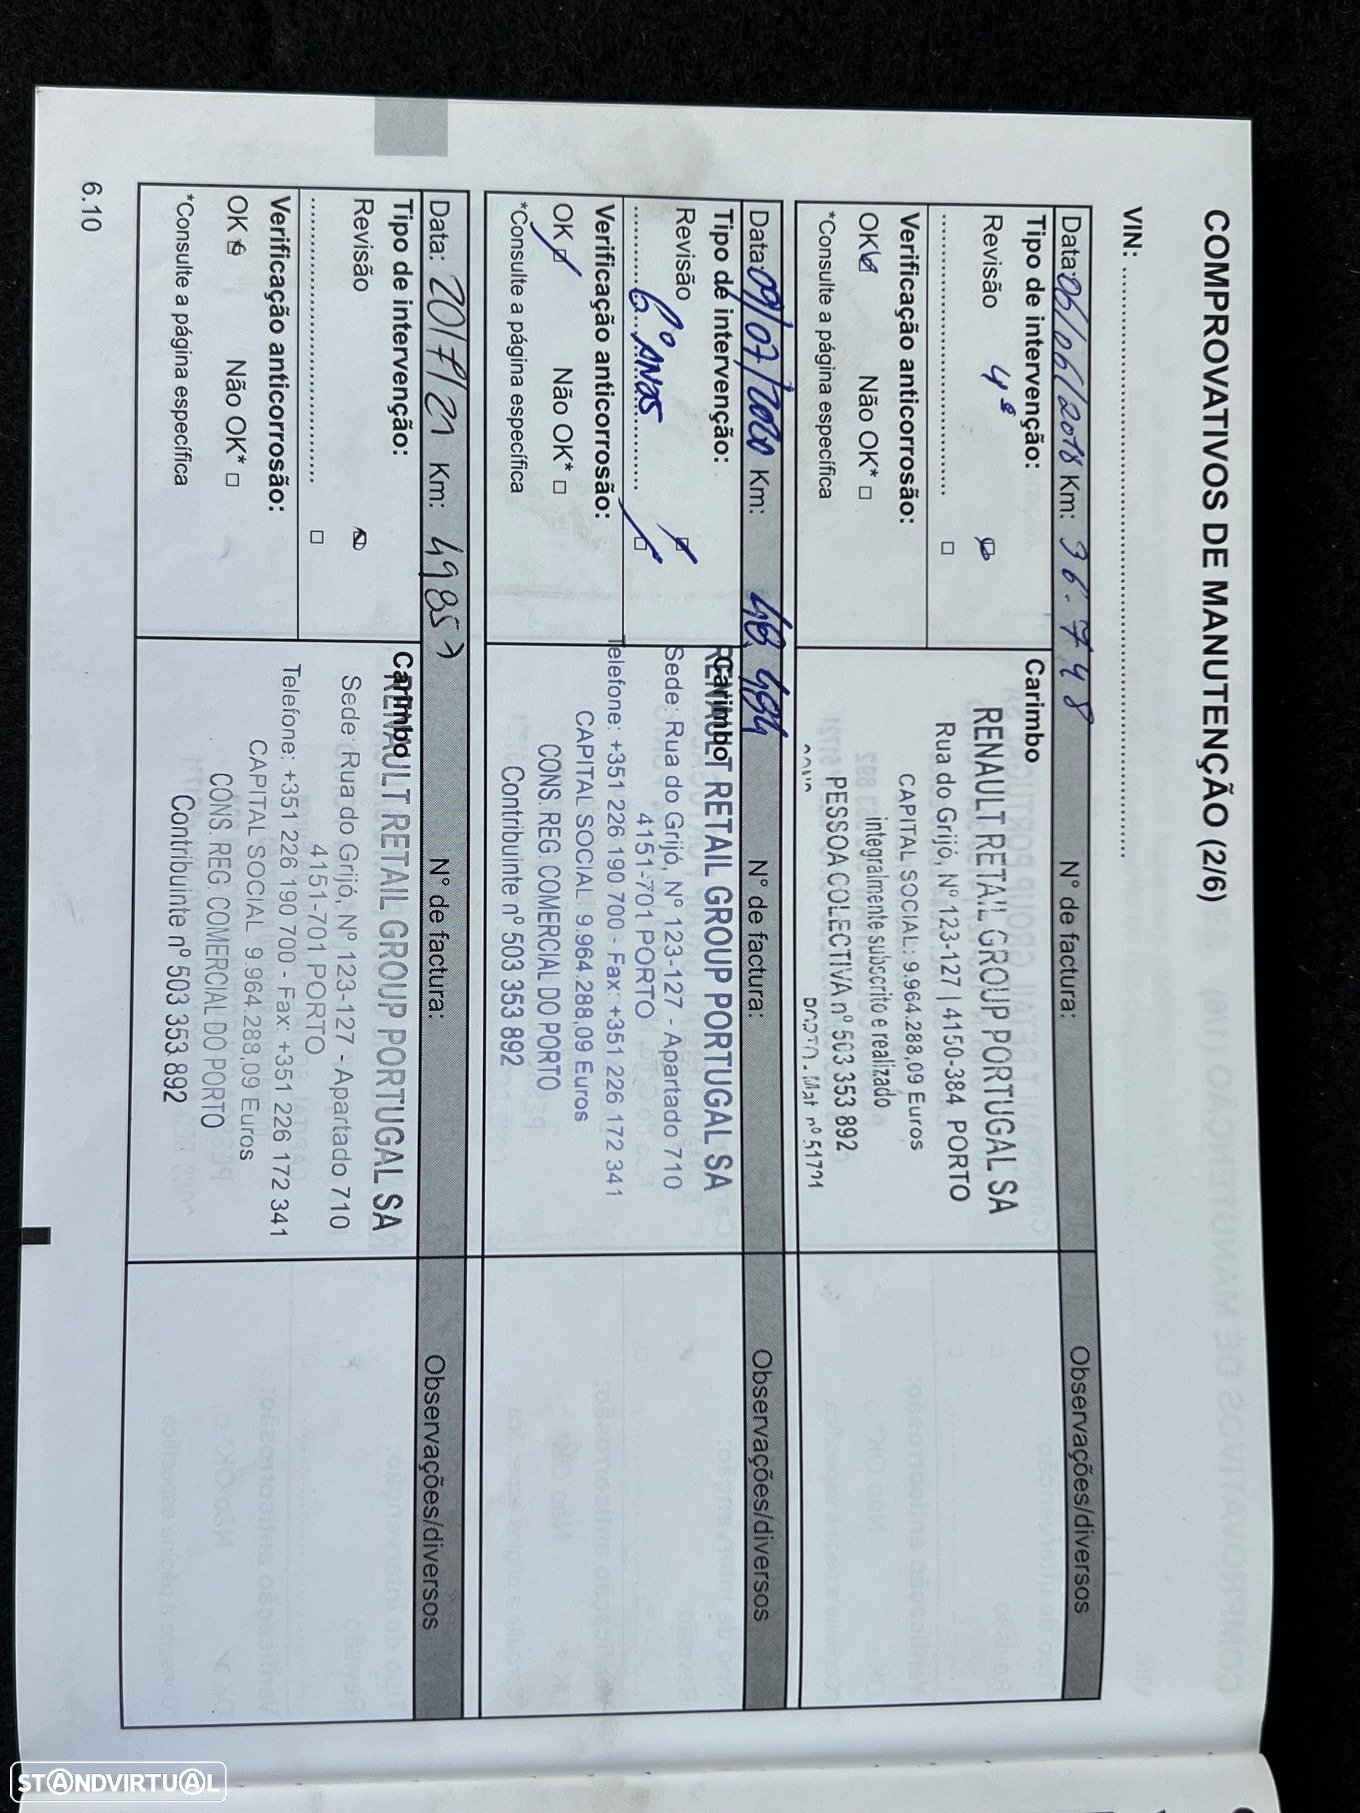 COMPROVATIVOS DE MANUTENÇÃO (2/6)
VIN: ..........................................................
Data: 06/06/2018 Km: 36.748 N° de factura: Observações/diversos
Tipo de intervenção:
Revisão 4ª
Verificação anticorrosão:
OK Não OK*
*Consulte a página específica
Carimbo
RENAULT RETAIL GROUP PORTUGAL SA
Rua do Grijó, Nº 123-127 | 4150-384 PORTO
CAPITAL SOCIAL: 9.964.288,09 Euros
integralmente subscrito e realizado
PESSOA COLECTIVA nº 503 353 892
Data: 09/07/2020 Km: 48.484 N° de factura: Observações/diversos
Tipo de intervenção:
Revisão
6º ANOS
Verificação anticorrosão:
OK Não OK*
*Consulte a página específica
Carimbo
RENAULT RETAIL GROUP PORTUGAL SA
Sede: Rua do Grijó, Nº 123-127 - Apartado 710
4151-701 PORTO
Telefone: +351 226 190 700 - Fax: +351 226 172 341
CAPITAL SOCIAL: 9.964.288,09 Euros
CONS. REG. COMERCIAL DO PORTO
Contribuinte nº 503 353 892
Data: 20/7/21 Km: 49857 N° de factura: Observações/diversos
Tipo de intervenção:
Revisão
Verificação anticorrosão:
OK Não OK*
*Consulte a página específica
Carimbo
RENAULT RETAIL GROUP PORTUGAL SA
Sede: Rua do Grijó, Nº 123-127 - Apartado 710
4151-701 PORTO
Telefone: +351 226 190 700 - Fax: +351 226 172 341
CAPITAL SOCIAL 9.964.288,09 Euros
CONS. REG COMERCIAL DO PORTO
Contribuinte nº 503 353 892
6.10
STANDVIRTUAL